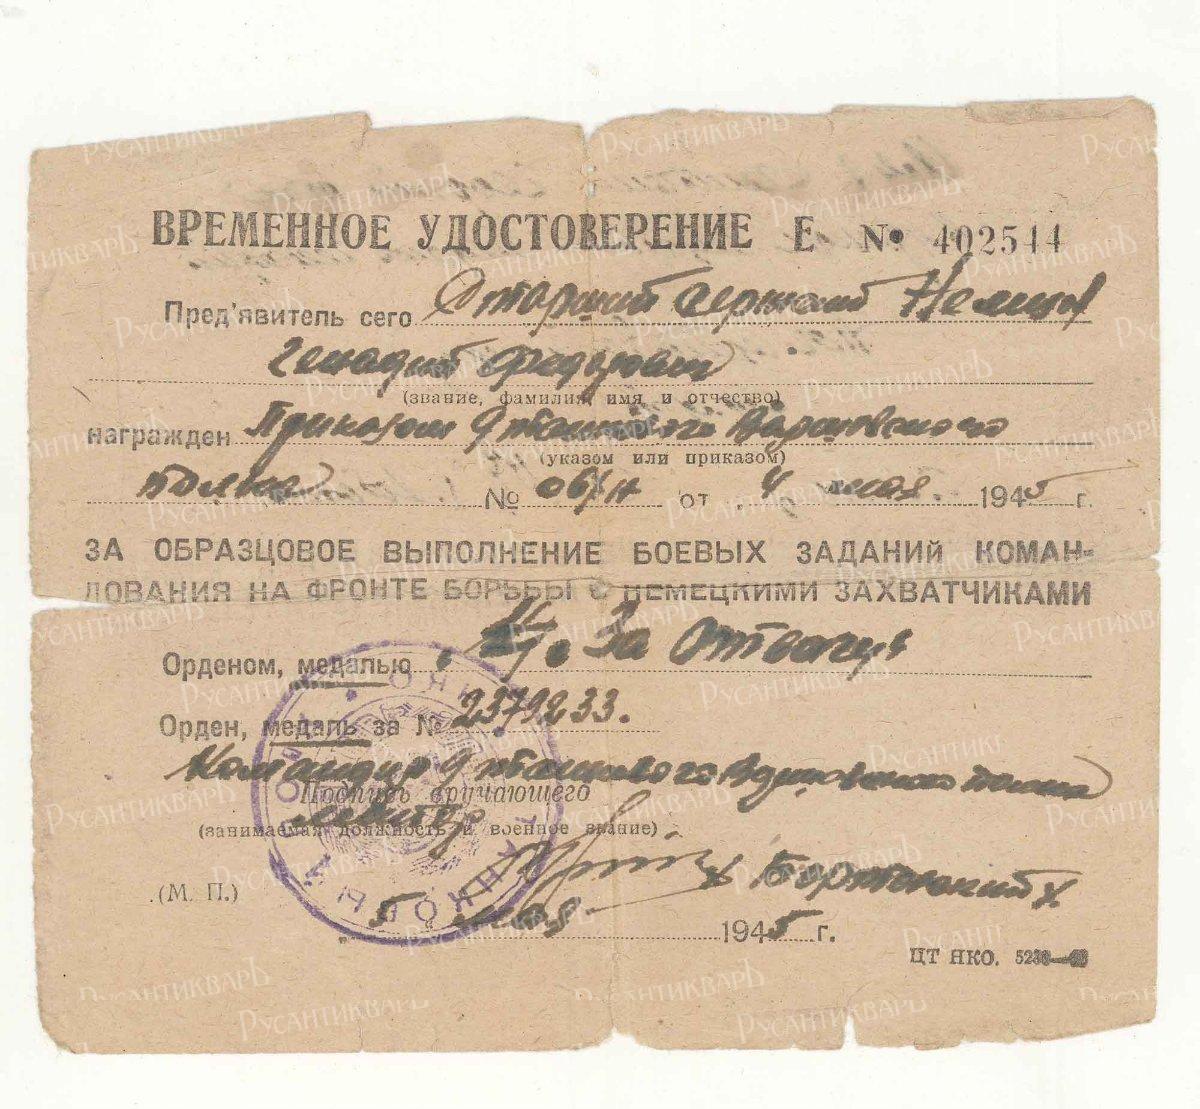 ВРЕМЕННОЕ УДОСТОВЕРЕНИЕ Е № 402544
Пред'явитель сего Старший сержант Немцов
Генадий Федорович
(звание, фамилия, имя и отчество)
награжден Приказом 9 Варшавского
(указом или приказом)
полка № 06/н от 4 мая 1945 г.
ЗА ОБРАЗЦОВОЕ ВЫПОЛНЕНИЕ БОЕВЫХ ЗАДАНИЙ КОМАН-
ДОВАНИЯ НА ФРОНТЕ БОРЬБЫ С НЕМЕЦКИМИ ЗАХВАТЧИКАМИ
Орденом, медалью За Отвагу
Орден, медаль за № 2379233.
Командир 9 полка
Подпись вручающего
(занимаемая должность и военное звание)
(М. П.)
5 мая 1945 г.
ЦТ НКО.
РусАнтикваръ